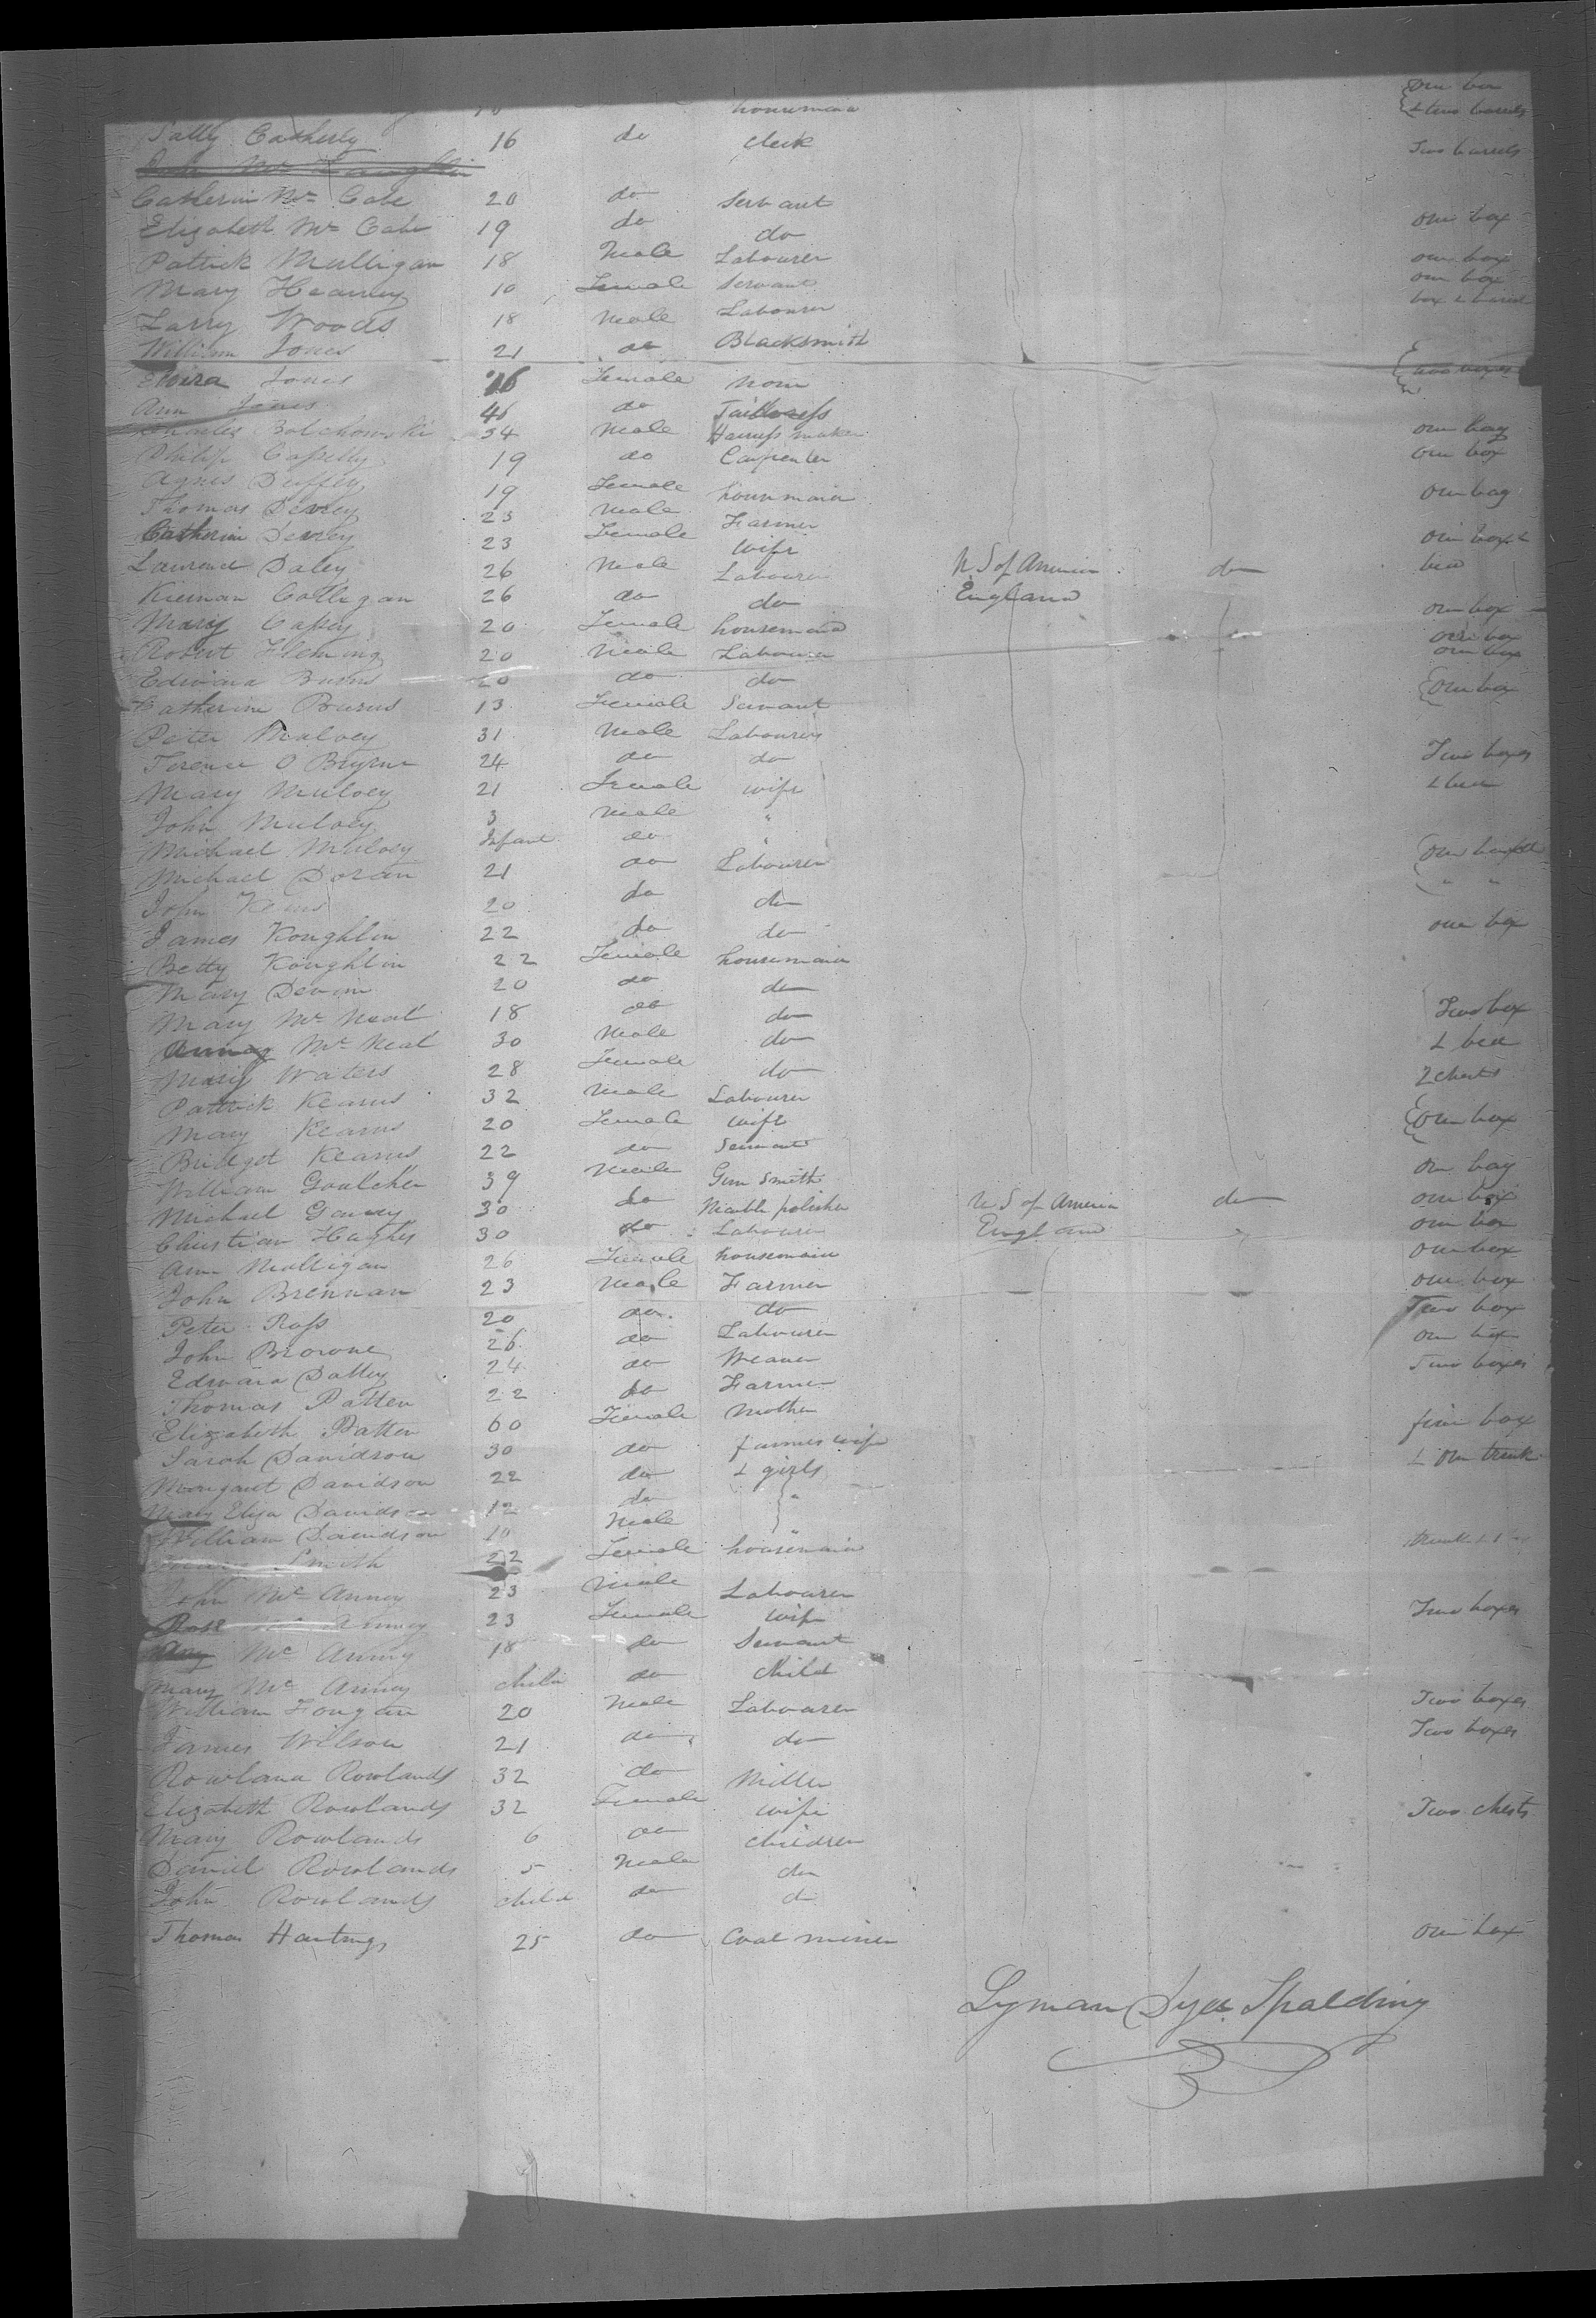 housemaid one box
Sally Catherly 16 do Clerk & two barrels
Two barrels
Catherin Mc Cabe 20 do Servant
Elizabeth Mc Cabe 19 do do one box
Patrick Mulligan 18 Male Labourer one box
Mary Hearney 10 Female Servant one box
Larry Woods 18 Male Labourer box & barrel
William Jones 21 do Blacksmith
Jones 16 Female None two boxes
Ann Jones do Tailoress
34 Male Harness maker one bag
Philip Casselly 19 do Carpenter one box
Agnes Duffey 19 Female housemaid one bag
Thomas Devrey 23 Male Farmer
Catherin Devrey 23 Female Wife one box &
Lawrence Daley 26 Male Labourer U S of America do bed
Kiernan Colligan 26 do do England
Mary Casey 20 Female housemaid one box
Robert Fleming 20 Male Labourer one box
Edward Burns 20 do do one box
Catherine Burns 13 Female Servant one box
Peter Mulvey 31 Male Labourer
Terence O Bryrne 24 do do Two boxes
Mary Mulvey 21 Female wife & bed
John Mulvey 3 Male "
Michael Mulvey Infant do "
Michael Doran 21 do Labourer one
John 20 do do " "
James Koughlin 22 do do one box
Betty Koughlin 22 Female housemaid
Mary Devin 20 do do
Mary Mc Neal 18 do do Two box
Mc Neal 30 Male do & bed
Mary Waters 28 Female do 2 chests
Patrick Kearns 32 Male Labourer
Mary Kearns 20 Female wife one box
Bridget Kearns 22 do Servant
William Goulcher 39 Male Gun Smith one bag
Michael 30 do Marble polisher U S of America do one box
Christian Hughes 30 do Labourer England one box
Ann Mulligan 26 Female housemaid one box
John Brennan 23 Male Farmer one box
Peter Ross 20 do do Two box
John Browne 26 do Labourer one box
Edward Dalley 24 do Weaver Two boxes
Thomas Patten 22 do Farmer
Elizabeth Patten 60 Female Mother five box
Sarah Davidson 30 do farmers wife & one trunk
Margaret Davidson 22 do & girls
Mary Eliza Davidson 12 do "
William Davidson 10 Male "
Smith 22 Female housemaid trunk
John Mc Anney 23 Male Labourer
Rose Mc Anney 23 Female wife Two boxes
Mc Anney 18 do Servant
Mary Mc Anney child do Child
William Fougan 20 Male Labourer Two boxes
James Wilson 21 do do Two boxes
Rowland Rowlands 32 do Miller
Elizabeth Rowlands 32 Female wife Two chests
Mary Rowlands 6 do children
Daniel Rowlands 5 Male do
John Rowlands child do do
Thomas Hastings 25 do Coal miner one box
Lyman Dyer Spalding